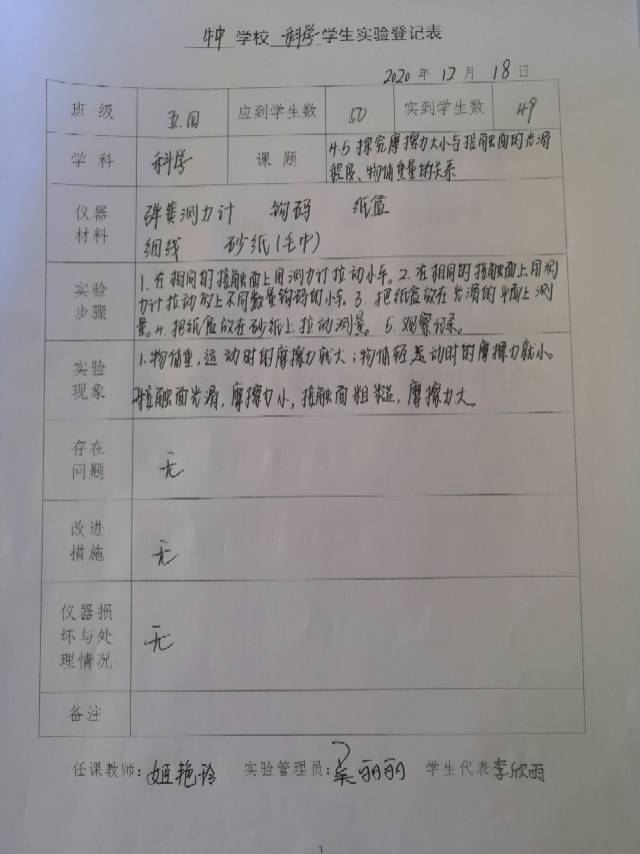 学校 科学 学生实验登记表
2020 年 12 月 18 日
班级 五.四 应到学生数 50 实到学生数 49
学科 科学 课题 4.5 探究摩擦力大小与接触面的光滑
程度、物体重量的关系
仪器
材料
弹簧测力计 钩码 纸盒
细线 砂纸(毛巾)
实验
步骤
1.在相同的接触面上用测力计拉动小车。2.在相同的接触面上用测
力计拉动放上不同数量钩码的小车 3.把纸盒放在光滑的平面上测
量。4.把纸盒放在砂纸上拉动测量。5.观察记录。
实验
现象
1.物体重,运动时的摩擦力就大;物体轻运动时的摩擦力就小。
接触面光滑,摩擦力小,接触面粗糙,摩擦力大。
存在
问题
无
改进
措施
无
仪器损
坏与处
理情况
无
备注
任课教师:姬艳玲 实验管理员:吴丽丽 学生代表李欣雨